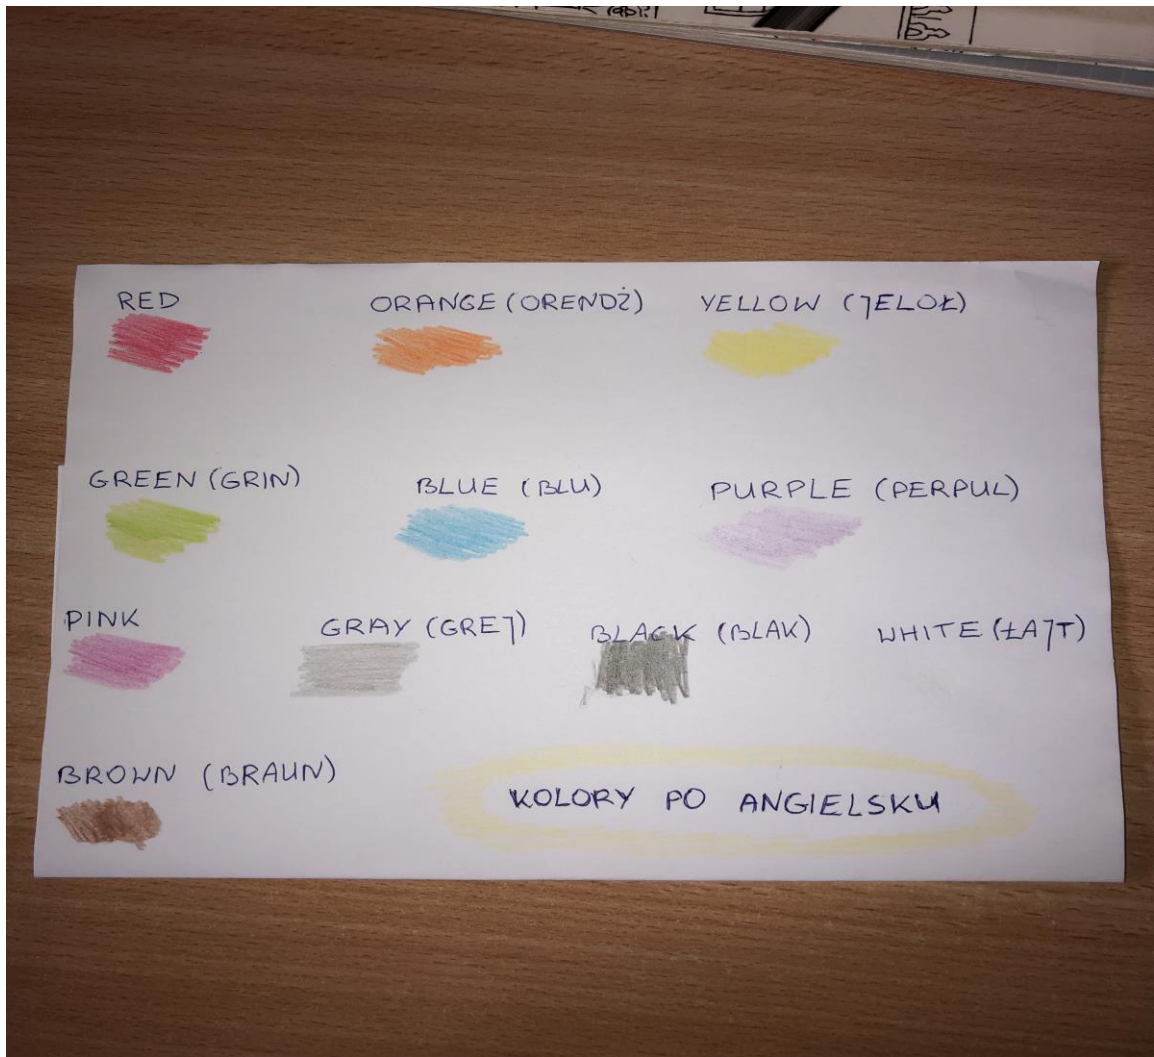 RED ORANGE (ORENDŻ) YELLOW (JELOŁ)
GREEN (GRIN) BLUE (BLU) PURPLE (PERPUL)
PINK GRAY (GREJ) BLACK (BLAK) WHITE (ŁAJT)
BROWN (BRAUN)
KOLORY PO ANGIELSKU